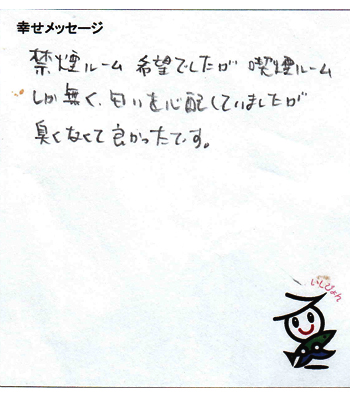 幸せメッセージ
禁煙ルーム 希望でしたが 喫煙ルーム
しか無く、匂いを心配していましたが
臭くなくて良かったです。
いしぴょん